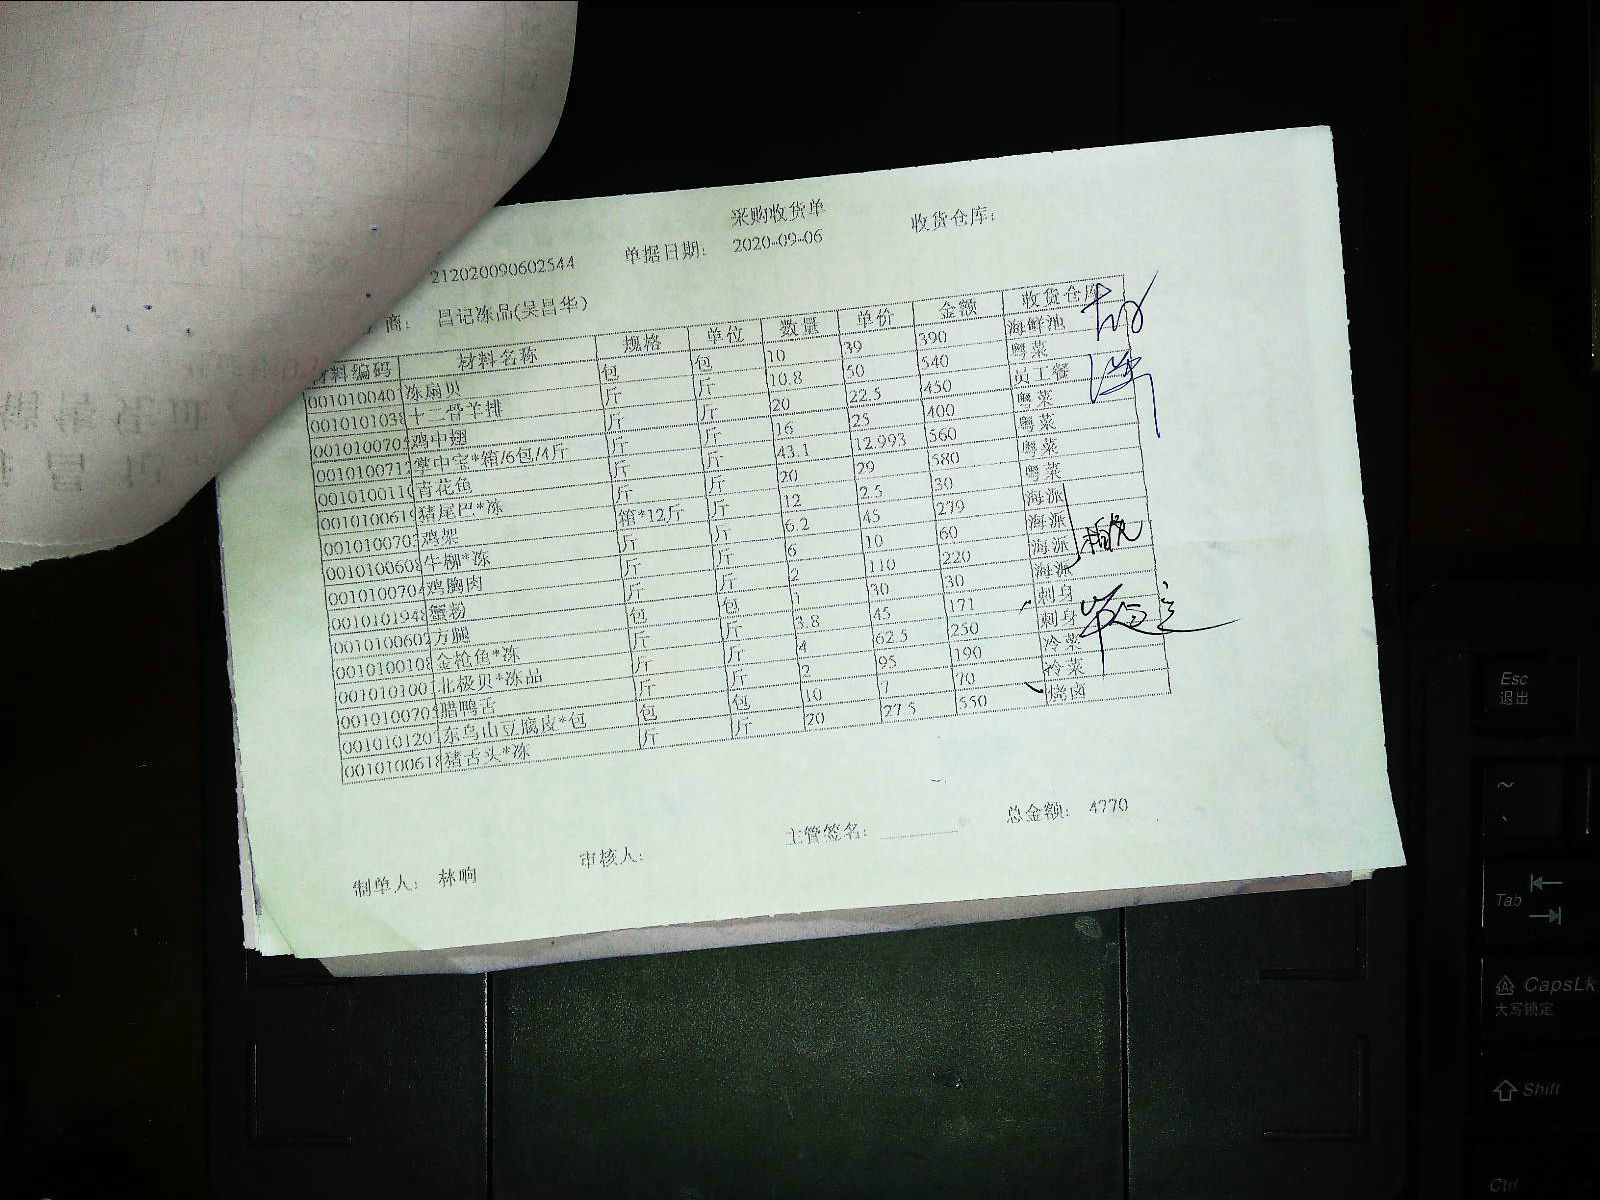 采购收货单
212020090602544 单据日期: 2020-09-06 收货仓库:
商: 昌记冻品(吴昌华)
材料编码 材料名称 规格 单位 数量 单价 金额 收货仓库
001010040 冻扇贝 包 包 10 39 390 海鲜池
001010103 十二骨羊排 斤 斤 10.8 50 540 粤菜
001010070 鸡中翅 斤 斤 20 22.5 450 员工餐
001010071 掌中宝*箱/6包/4斤 斤 斤 16 25 400 粤菜
001010011 青花鱼 斤 斤 43.1 12.993 560 粤菜
001010061 猪尾巴*冻 斤 斤 20 29 580 粤菜
001010070 鸡架 箱*12斤 斤 12 2.5 30 粤菜
001010060 牛柳*冻 斤 斤 6.2 45 279 海派
001010070 鸡胸肉 斤 斤 6 10 60 海派
001010194 蟹粉 斤 斤 2 110 220 海派
001010060 方腿 包 包 1 30 30 海派
001010010 金枪鱼*冻 斤 斤 3.8 45 171 刺身
001010100 北极贝*冻品 斤 斤 4 62.5 250 刺身
001010070 腊鸭舌 斤 斤 2 95 190 冷菜
001010120 东乌山豆腐皮*包 包 包 10 7 70 冷菜
001010061 猪舌头*冻 斤 斤 20 27.5 550 烧卤
制单人: 林响 审核人: 主管签名: 总金额: 4770
Esc
退出
Tab
CapsLk
大写锁定
Shift
Ctrl